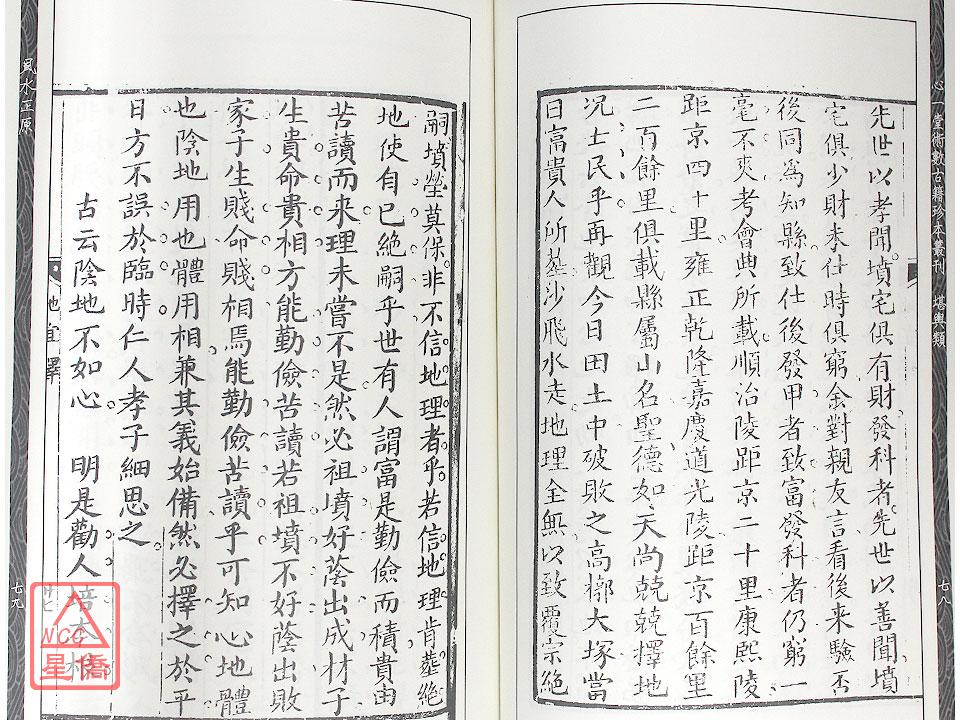 心一堂術數古籍珍本叢刊　堪輿類
七八
先世以孝聞墳宅俱有財發科者先世以善聞墳
宅俱少財未仕時俱窮余對親友言看後來驗否
後同為知縣致仕後發甲者致富發科者仍窮一
毫不爽考會典所載順治陵距京二十里康熙陵
距京四十里雍正乾隆嘉慶道光陵距京百餘里
二百餘里俱載縣屬山名聖德如天尚兢兢擇地
况士民乎再觀今日田土中破敗之高槨大塚當
日富貴人所塟沙飛水走地理全無以致覆宗絕
嗣墳塋莫保非不信地理者乎若信地理肯塟絕
地使自己絕嗣乎世有人謂富是勤儉而積貴由
苦讀而來理未嘗不是然必祖墳好蔭出成材子
生貴命貴相方能勤儉苦讀若祖墳不好蔭出敗
家子生賤命賤相焉能勤儉苦讀乎可知心地體
也陰地用也體用相兼其義始備然必擇之於平
日方不誤於臨時仁人孝子細思之
古云陰地不如心　明是勸人培本根
風水正原
地宜擇
廿七
七九
NCC
星僑